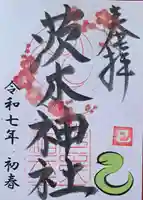 奉拝
茨木神社
令和七年・初春